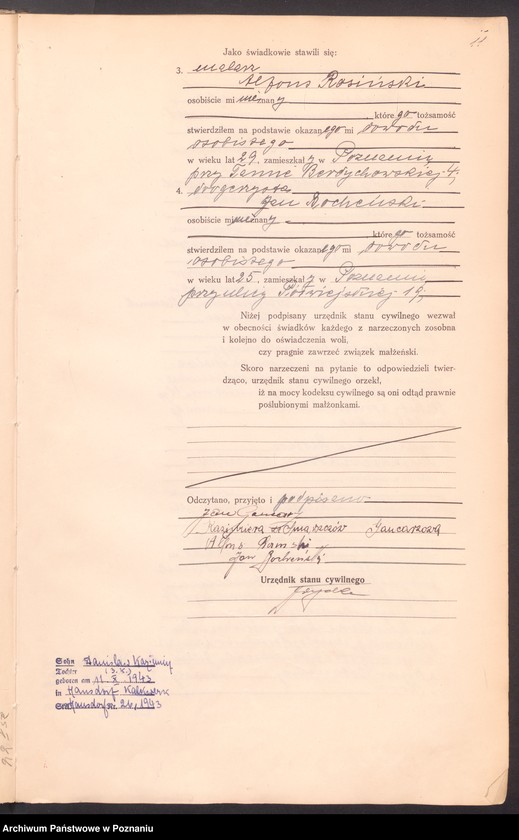 11
Jako świadkowie stawili się:
3. malarz
Alfons Rosiński
osobiście mi nieznany
którego tożsamość
stwierdziłem na podstawie okazanego mi dowodu
osobistego
w wieku lat 29, zamieszkały w Poznaniu
przy Tamie Berdychowskiej 4,
4. drogerzysta
Jan Rocheński
osobiście mi nieznany
którego tożsamość
stwierdziłem na podstawie okazanego mi dowodu
osobistego
w wieku lat 25, zamieszkały w Poznaniu
przy ulicy Półwiejskiej 19,
Niżej podpisany urzędnik stanu cywilnego wezwał
w obecności świadków każdego z narzeczonych zosobna
i kolejno do oświadczenia woli,
czy pragnie zawrzeć związek małżeński.
Skoro narzeczeni na pytanie to odpowiedzieli twier-
dząco, urzędnik stanu cywilnego orzekł,
iż na mocy kodeksu cywilnego są oni odtąd prawnie
poślubionymi małżonkami.
Odczytano, przyjęto i podpisano
Jan
Kazimiera Gancarzowa
Jan
Urzędnik stanu cywilnego
Sohn Stanisław
Tochter
geboren am 11. X 1943
in Hansdorf
Hansdorf Nr. 21/1943
Archiwum Państwowe w Poznaniu